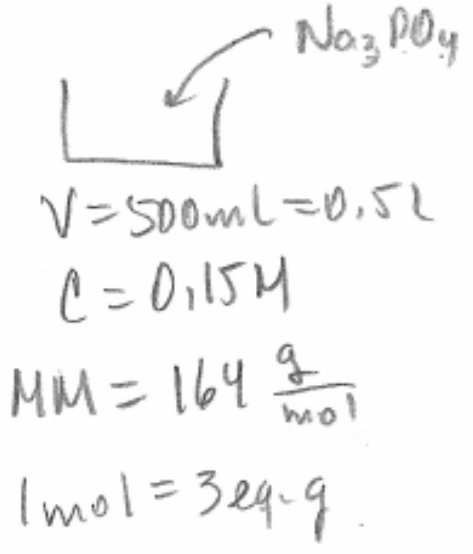 Na₃PO₄
V=500mL=0,5L
C=0,15M
MM=164 g/mol
1mol=3eq-g.